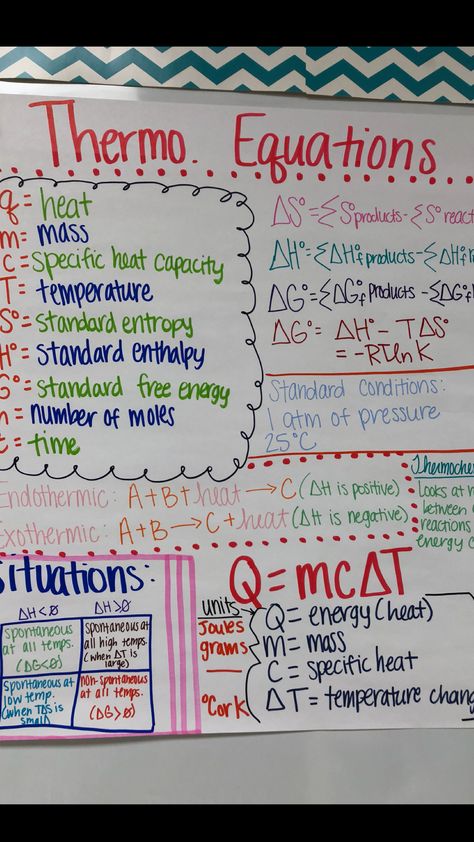 Thermo. Equations
q= heat
m= mass
c= specific heat capacity
T= temperature
S°= standard entropy
H°= standard enthalpy
G°= standard free energy
n= number of moles
t= time
ΔS°=ΣS°products-ΣS°react
ΔH°=ΣΔH°f products-ΣΔH°f
ΔG°=ΣΔG°f products-ΣΔG°f
ΔG°= ΔH°-TΔS°
= -RTlnK
Standard Conditions:
1 atm of pressure
25°C
Endothermic: A+B+heat→C (ΔH is positive)
Exothermic: A+B→C+heat (ΔH is negative)
Thermoche
Looks at
between
reactions
energy
Situations:
ΔH<0 ΔH>0
spontaneous
at all temps.
(ΔG<0)
spontaneous at
all high temps.
(when ΔT is
large)
spontaneous at
low temp.
(when TΔS is
small)
non-spontaneous
at all temps.
(ΔG>0)
Q=mcΔT
units
Joules
grams
°C or K
Q= energy (heat)
m= mass
C= specific heat
ΔT= temperature chang